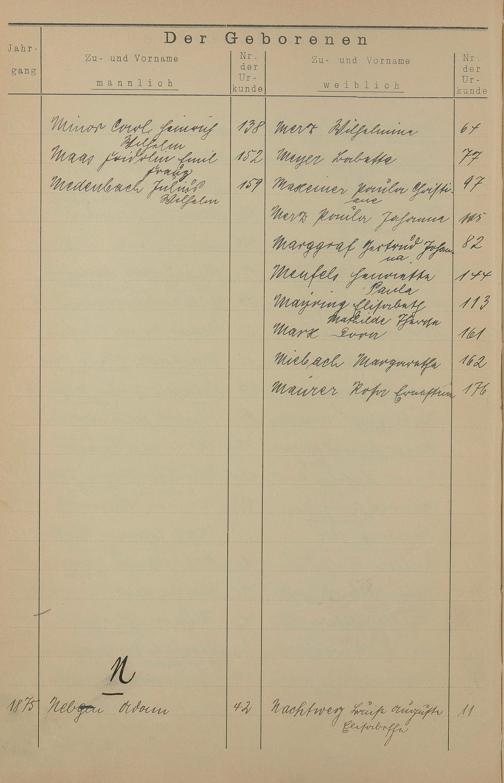 Der Geborenen
Jahrgang
Zu- und Vorname
männlich
Nr. der Urkunde
Zu- und Vorname
weiblich
Nr. der Urkunde
Minor Carl Heinrich 138 Merz Wilhelmine 64
Wilhelm
Maas Fridolin Emil 152 Meyer Babette 77
Franz
Medenbach Julius 159 Maxeiner Paula Christi- 97
Wilhelm ane
Merz Paula Johanna 105
Marggraf Gertrud Johan- 82
na
Menfels Henriette 144
Paula
Mayring Elisabeth 113
Mathilde
Marx Cora 161
Miebach Margarethe 162
Maurer Rosa Ernestine 176
N
1875 Adam 42 Nachtweg Auguste 11